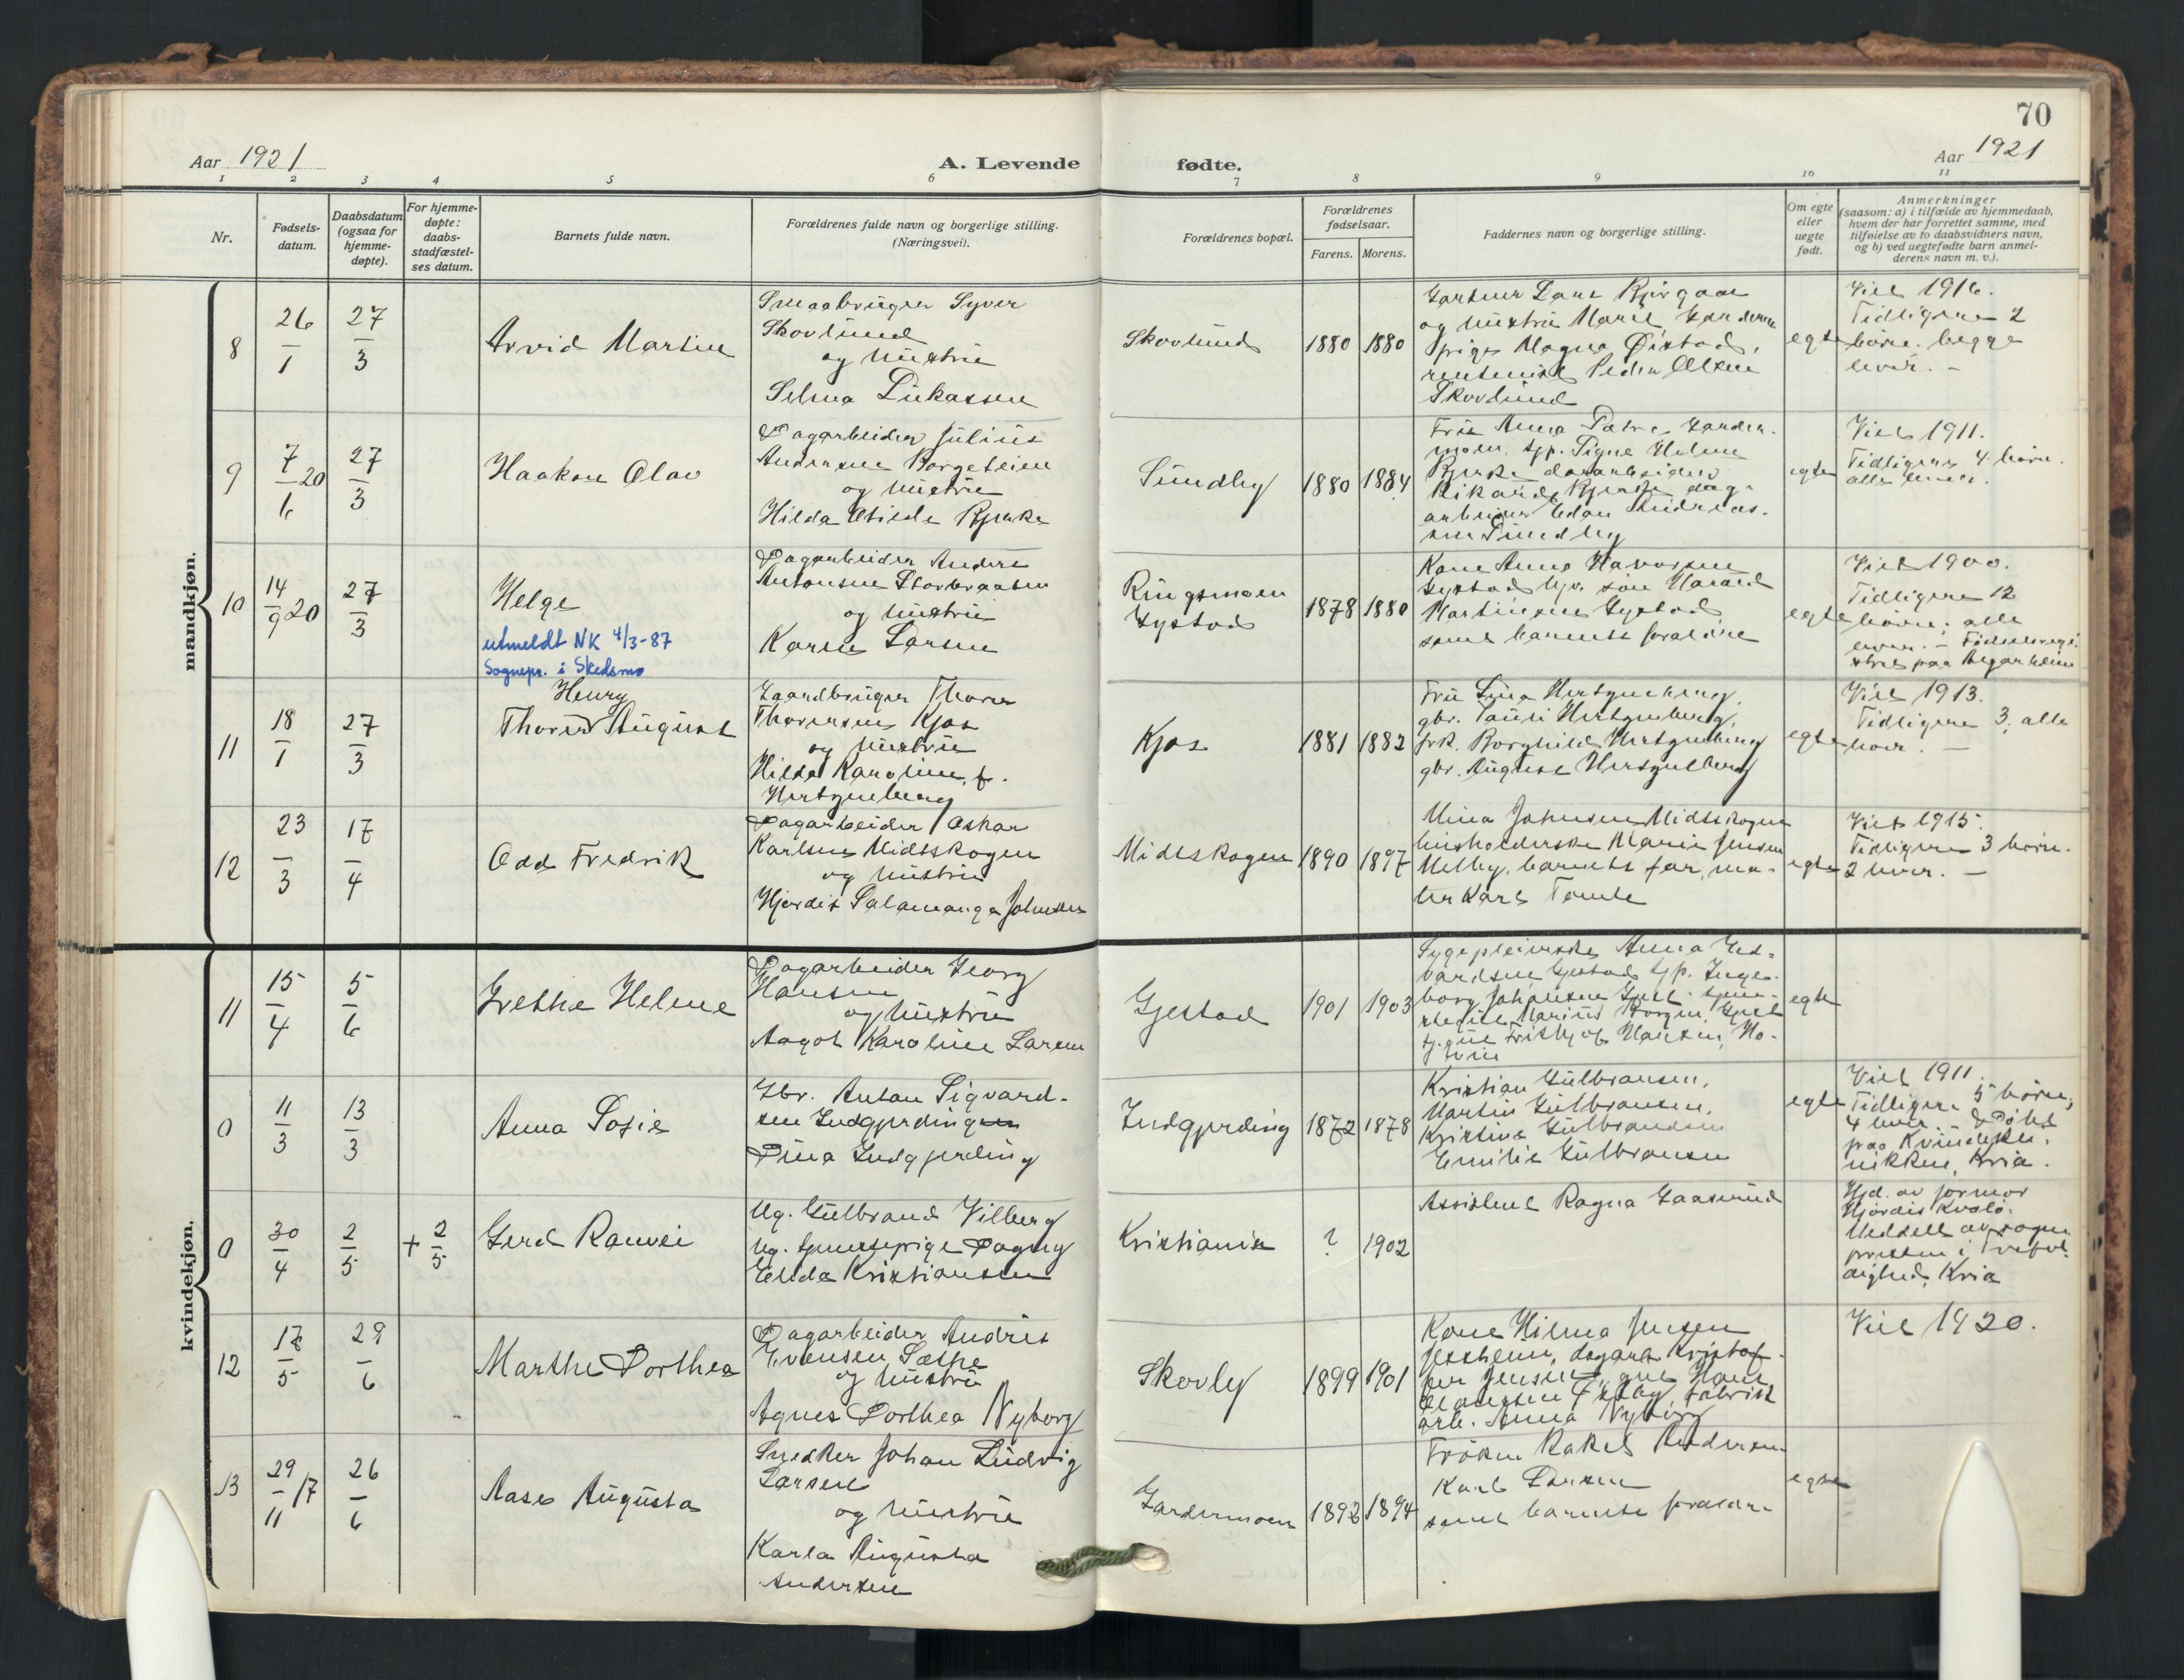 70
Aar 1921
A. Levende
fødte.
Aar 1921
1 2 3 4 5 6 7 8 9 10 11
Nr.
Fødsels-
datum.
Daabsdatum
(ogsaa for
hjemme-
døpte).
For hjemme-
døpte:
daabs-
stadfæstel-
ses datum.
Barnets fulde navn.
Forældrenes fulde navn og borgerlige stilling.
(Næringsvei).
Forældrenes bopæl.
Forældrenes
fødselsaar.
Farens. Morens.
Faddernes navn og borgerlige stilling.
Om egte
eller
uegte
født.
Anmerkninger
(saasom: a) i tilfælde av hjemmedaab,
hvem der har forrettet samme, med
tilføielse av to daabsvidners navn,
og b) ved uegtefødte barn anmel-
derens navn m. v.).
mandkjøn.
8
26/1
27/3
Arvid Martin
Smaabruger Syver
Skovlund
og hustru
Selma Lukassen
Skovlund
1880 1880
og hustru Marie,
pige Magna Øistad,
Peder Olsen
Skovlund
egte
Viet 1916.
Tidligere 2
børn. begge
lever. –
9
7/6 20
27/3
Haakon Olav
Dagarbeider Julius
Andersen Borgeteien
og hustru
Hilda Otilde Bjerke
Sundby
1880 1884
Fru Anna
Signe Helene
Bjerke dagarbeider
Rikard Bjerke dag-
arbeider Edan Andreas-
sen Sundby
egte
Viet 1911.
Tidligere 4 børn.
alle lever.
10
14/9 20
27/3
Helge
utmeldt NK 4/3-87
Sognepr. i Skedsmo
Dagarbeider Anders
Antonsen Storbraaten
og hustru
Karen Larsen
Ringsmoen
Gystad
1878 1880
Kone Anna Halvorsen
Gystad søn Harald
Martinsen Gystad
samt barnets forældre
egte
Viet 1900.
Tidligere 12
børn; alle
lever. – Fødselsregi-
11
18/1
27/3
Henry
Thorer August
Gaardbruger Thorer
Thoresen Kjos
og hustru
Hilda Karoline f.
Hertzenberg
Kjos
1881 1882
Fru Lina Hertzenberg,
gbr. Lauri Hertzenberg,
frk. Borghild Hertzenberg
gbr. August Hertzenberg
egte
Viet 1913.
Tidligere 3, alle
lever. –
12
23/3
17/4
Odd Fredrik
Dagarbeider Oskar
Karlsen Midtskogen
og hustru
Hjørdis Salamanga Johnsen
Midtskogen
1890 1897
Mina Johnsen Midtskogen
husholderske Marie Jensen
Melby, barnets far, ma-
ler Karl Tomte
egte
Viet 1915.
Tidligere 3 børn.
2 lever. –
kvindekjøn.
11
15/4
5/6
Grethe Helene
Dagarbeider Georg
Hansen
og hustru
Aagot Karoline Larsen
Gjestad
1901 1903
Sygepleierske Anna Ed-
vardsen, Gjestad tjp. Inge-
borg Johansen
Marius Borgen
Frithjof Hansen, Ho-
vin
egte
0
11/3
13/3
Anna Sofie
Gbr. Anton Sigvard-
sen Indgjerdingen
Dina Indgjerding
Indgjerding
1872 1878
Kristian Gulbransen,
Martin Gulbransen,
Kristine Gulbrandsen
Emilie Gulbransen
egte
Viet 1911.
Tidligere 5 børn;
4 lever. – Døbt
paa Kvindekli-
nikken, Kria.
0
30/4
2/5
+ 2/5
Gerd Ranvei
Ug. Gulbrand Vilberg
Ug. tjenestepige Dagny
Elida Kristiansen
Kristiania
? 1902
Assistent Ragna Gaaserud
Hjd. av jormor
Hjørdis Kvalø.
Meddelt av sogne-
presten i Trefol-
dighed, Kria
12
17/5
29/6
Marthe Dorthea
Dagarbeider Andreas
Evensen Sæthe
og hustru
Agnes Dorthea Nyborg
Skovly
1899 1901
Kone Hilma Jensen
Jessheim, dagarb. Kristof-
fer Jensen, Hans
fabrik
arb. Anna Nyborg
Viet 1920.
13
29/11 17
26/6
Aase Augusta
Snedker Johan Ludvig
Larsen
og hustru
Karla Augusta
Andersen
Gardermoen
1892 1894
Frøken Rakel Andersen
Karl Larsen
samt barnets forældre
egte